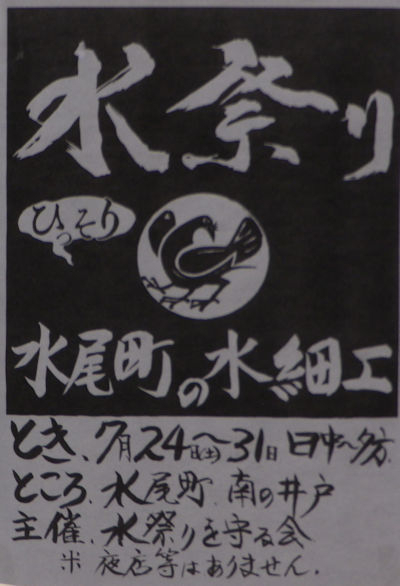 水祭り
ひっそり
水尾町の水細工
とき、7月24日(土)〜31日 日中〜夕方
ところ、水尾町、南の井戸
主催、水祭りを守る会
※ 夜店等はありません.